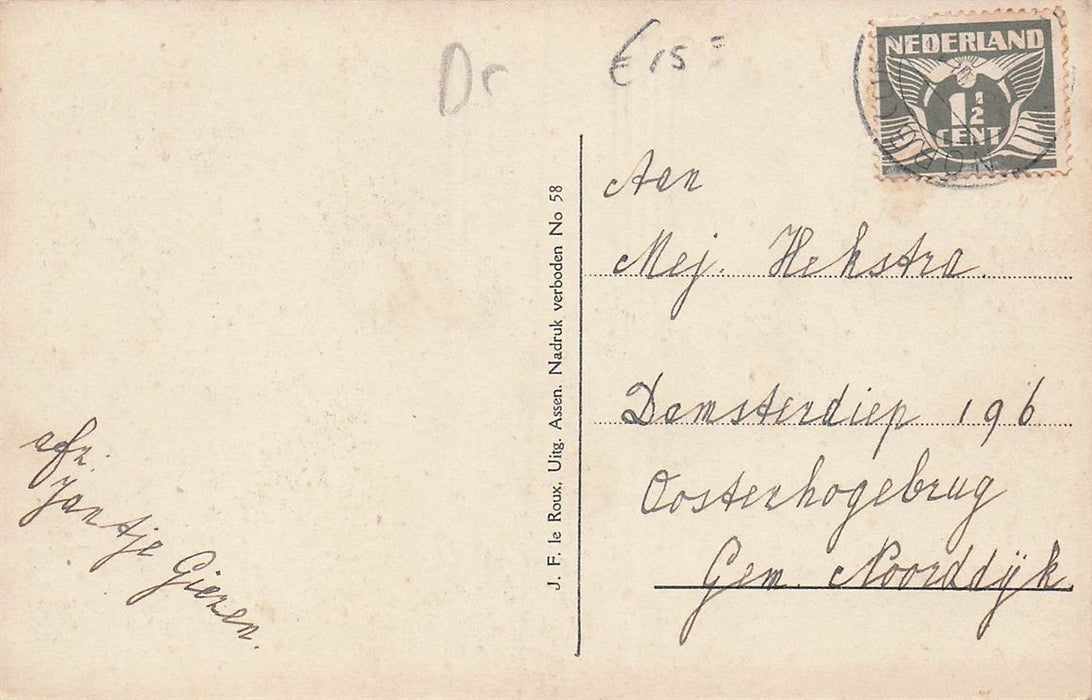 Dr
€ 15=
NEDERLAND
1½
CENT
Aan
Mej. Hekstra.
Damsterdiep 196
Oosterhogebrug
Gem. Noorddijk.
J. F. le Roux, Uitg. Assen. Nadruk verboden No 58
afz.
Jantje Giezen.